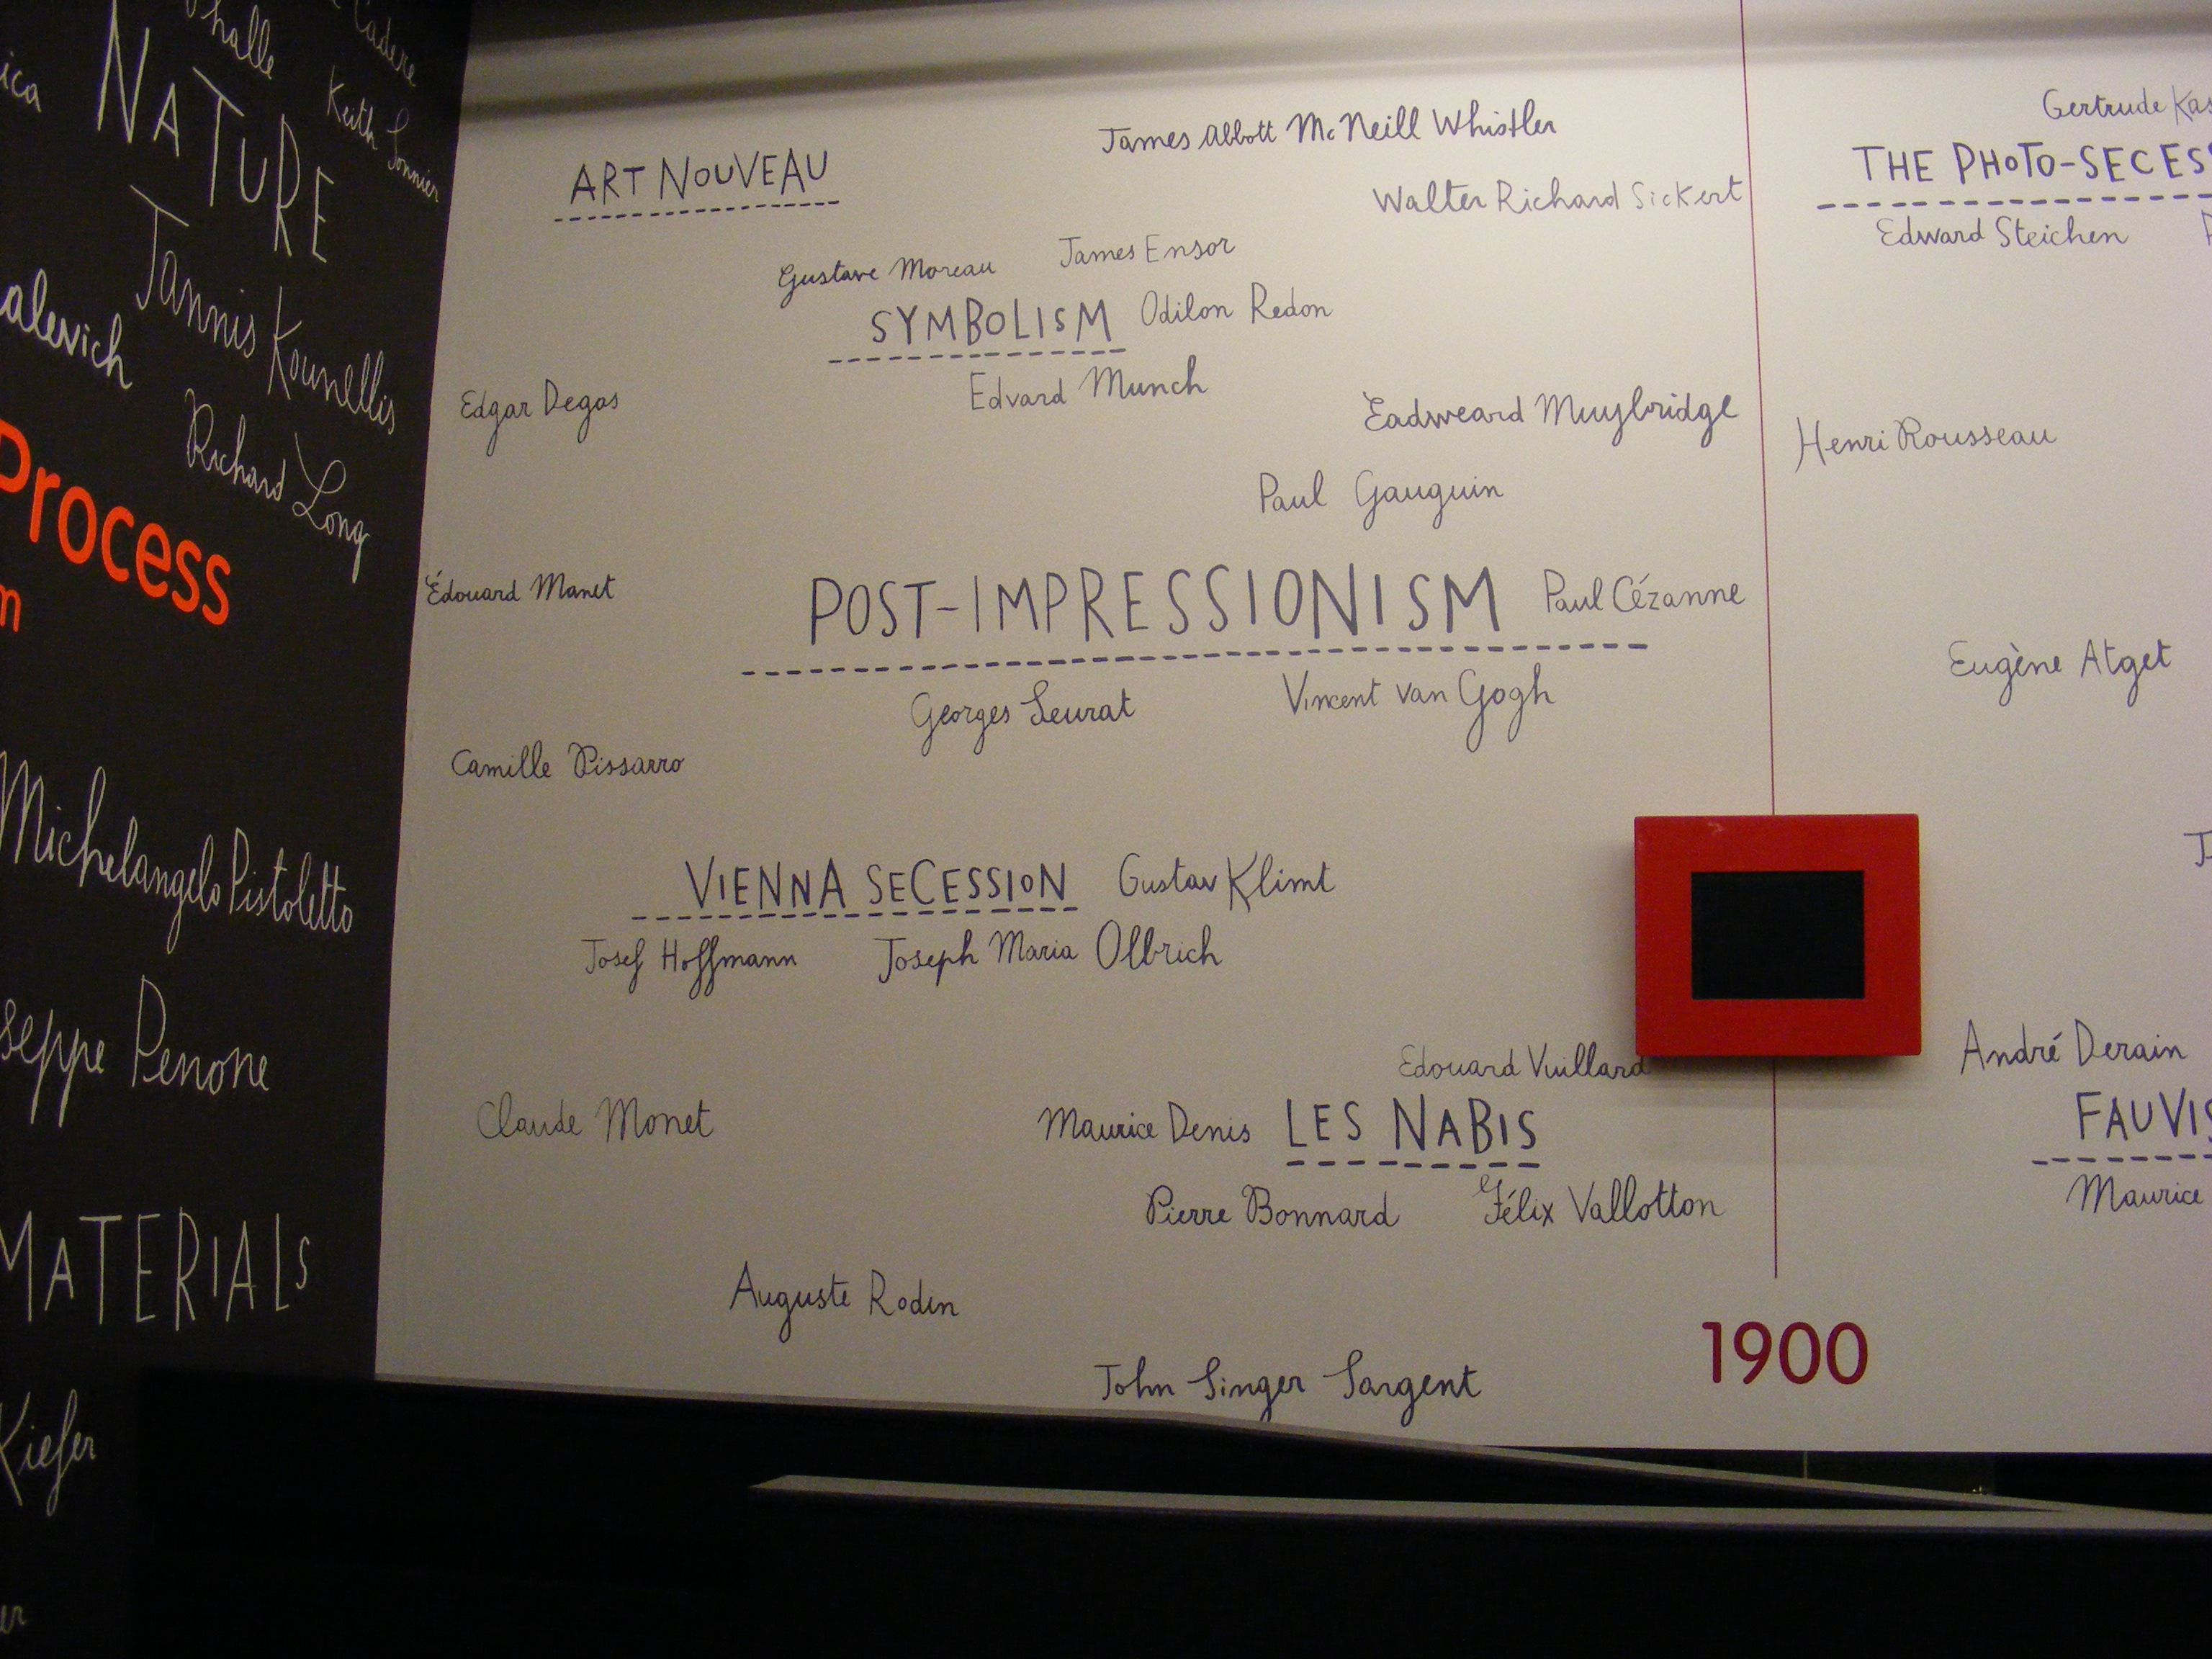 halle
Cadere
ica
NATURE
Keith Sonnier
Jannis Kounellis
alevich
Richard Long
Process
m
Michelangelo Pistoletto
seppe Penone
MATERIALS
Kiefer
er
James Abbott McNeill Whistler
ART NOUVEAU
Walter Richard Sickert
Gustave Moreau
James Ensor
SYMBOLISM
Odilon Redon
Edvard Munch
Edgar Degas
Eadweard Muybridge
Paul Gauguin
Édouard Manet
POST-IMPRESSIONISM
Paul Cézanne
Georges Seurat
Vincent van Gogh
Camille Pissarro
VIENNA SECESSION
Gustav Klimt
Josef Hoffmann
Joseph Maria Olbrich
Edouard Vuillard
Claude Monet
Maurice Denis
LES NABIS
Pierre Bonnard
Félix Vallotton
Auguste Rodin
John Singer Sargent
1900
Gertrude Kas
THE PHOTO-SECESS
Edward Steichen
Henri Rousseau
Eugène Atget
André Derain
FAUVIS
Maurice